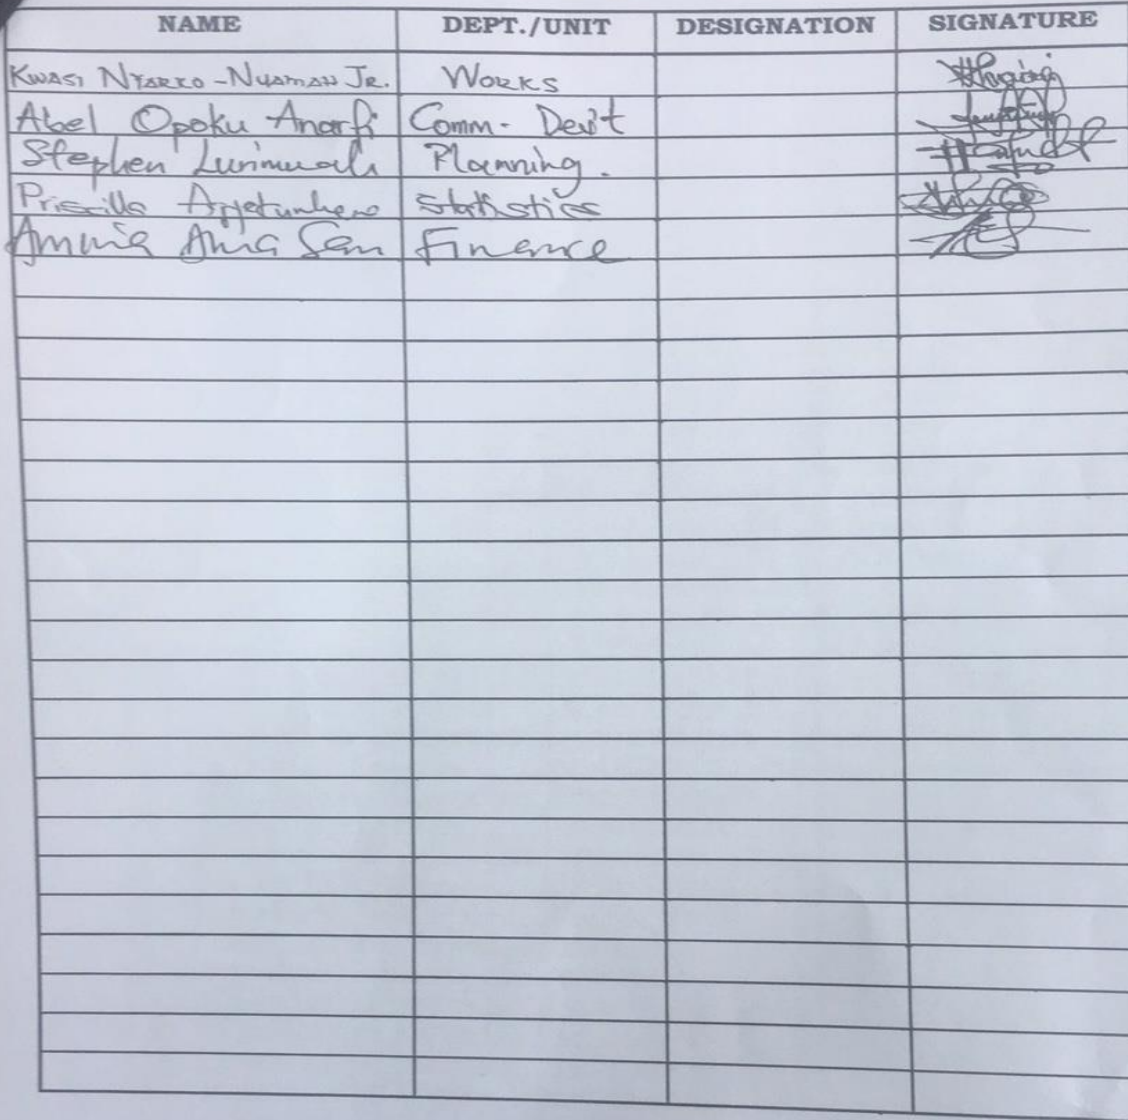 NAME DEPT./UNIT DESIGNATION SIGNATURE
KWASI NYARKO-NUAMAH JR. WORKS
Abel Opoku Anarfi Comm. Dev't
Stephen Planning.
Priscilla Statistics
Ama Finance